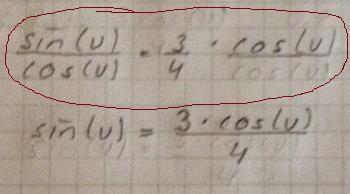 sin(v)/cos(v) = 3/4 · cos(v)/cos(v)
sin(v) = 3·cos(v)/4